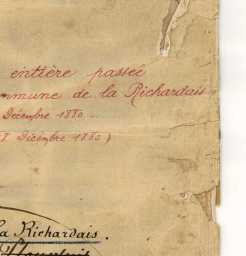 entière passée
ommune de la Richardais
Décembre 1880
8 Décembre 1880)
la Richardais.